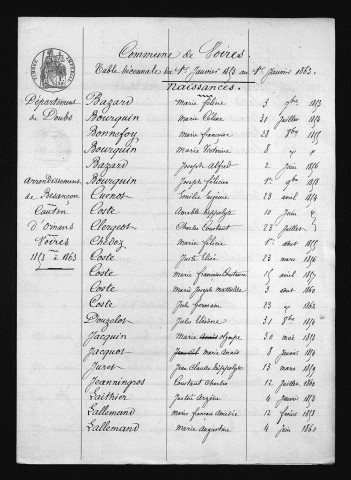 Commune de Voires
Table décennale du 1er Janvier 1853 au 1er Janvier 1863
Naissances
Département
du Doubs
arrondissement
de Besançon
Canton
d'Ornans
Voires
1853 à 1863
Bazard Marie Félicie 3 9bre 1853
Bourguin Marie Céline 31 Juillet 1854
Bonnefoy Marie francoise 28 8bre 1855
Bourguin Marie Victorine 8
Bazard Joseph Alfred 2 Juin 1856
Bourguin Joseph félicien 1er 9bre 1858
Cuenot Emilie Eugénie 23 avril 1854
Coste Aimable hippolyte 10 Juin
Clergeot Charles Constant 23 Juillet
Chédoz Marie félicie 1er août 1855
Coste Juste Elisé 23 mars 1856
Coste Marie francoise 15 avril 1857
Coste Marie Joseph 3 août 1860
Coste Jule Germain 23
Douzelot Jules 31 8bre 1854
Jacquin Marie olympe 30 mai 1853
Jacquot Marie Anaïs 8 Janvier 1854
Juret Jean Claude hippolyte 13 mars 1859
Jeanningros Constant Charles 12 Juillet 1860
Laithier Justin 4 Janvier 1853
Lallemand Marie francois 12 février 1853
Lallemand Marie augustine 4 Juin 1860